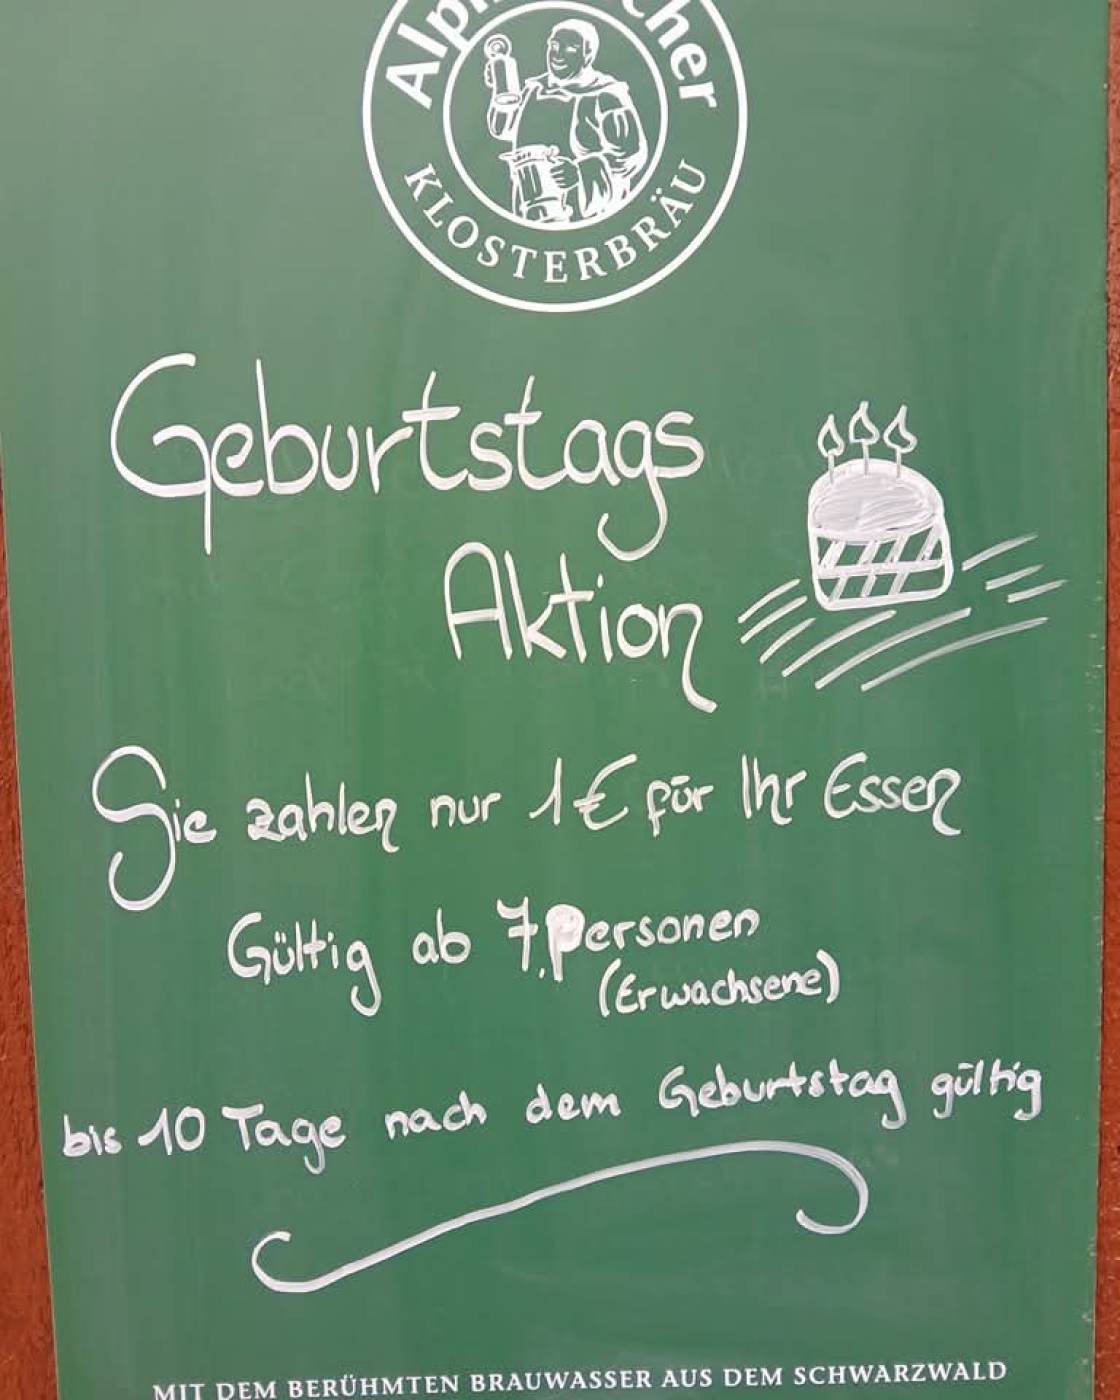 KLOSTERBRÄU
Geburtstags
Aktion
Sie zahlen nur 1€ für Ihr Essen
Gültig ab 7.Personen
(Erwachsene)
bis 10 Tage nach dem Geburtstag gültig
MIT DEM BERÜHMTEN BRAUWASSER AUS DEM SCHWARZWALD